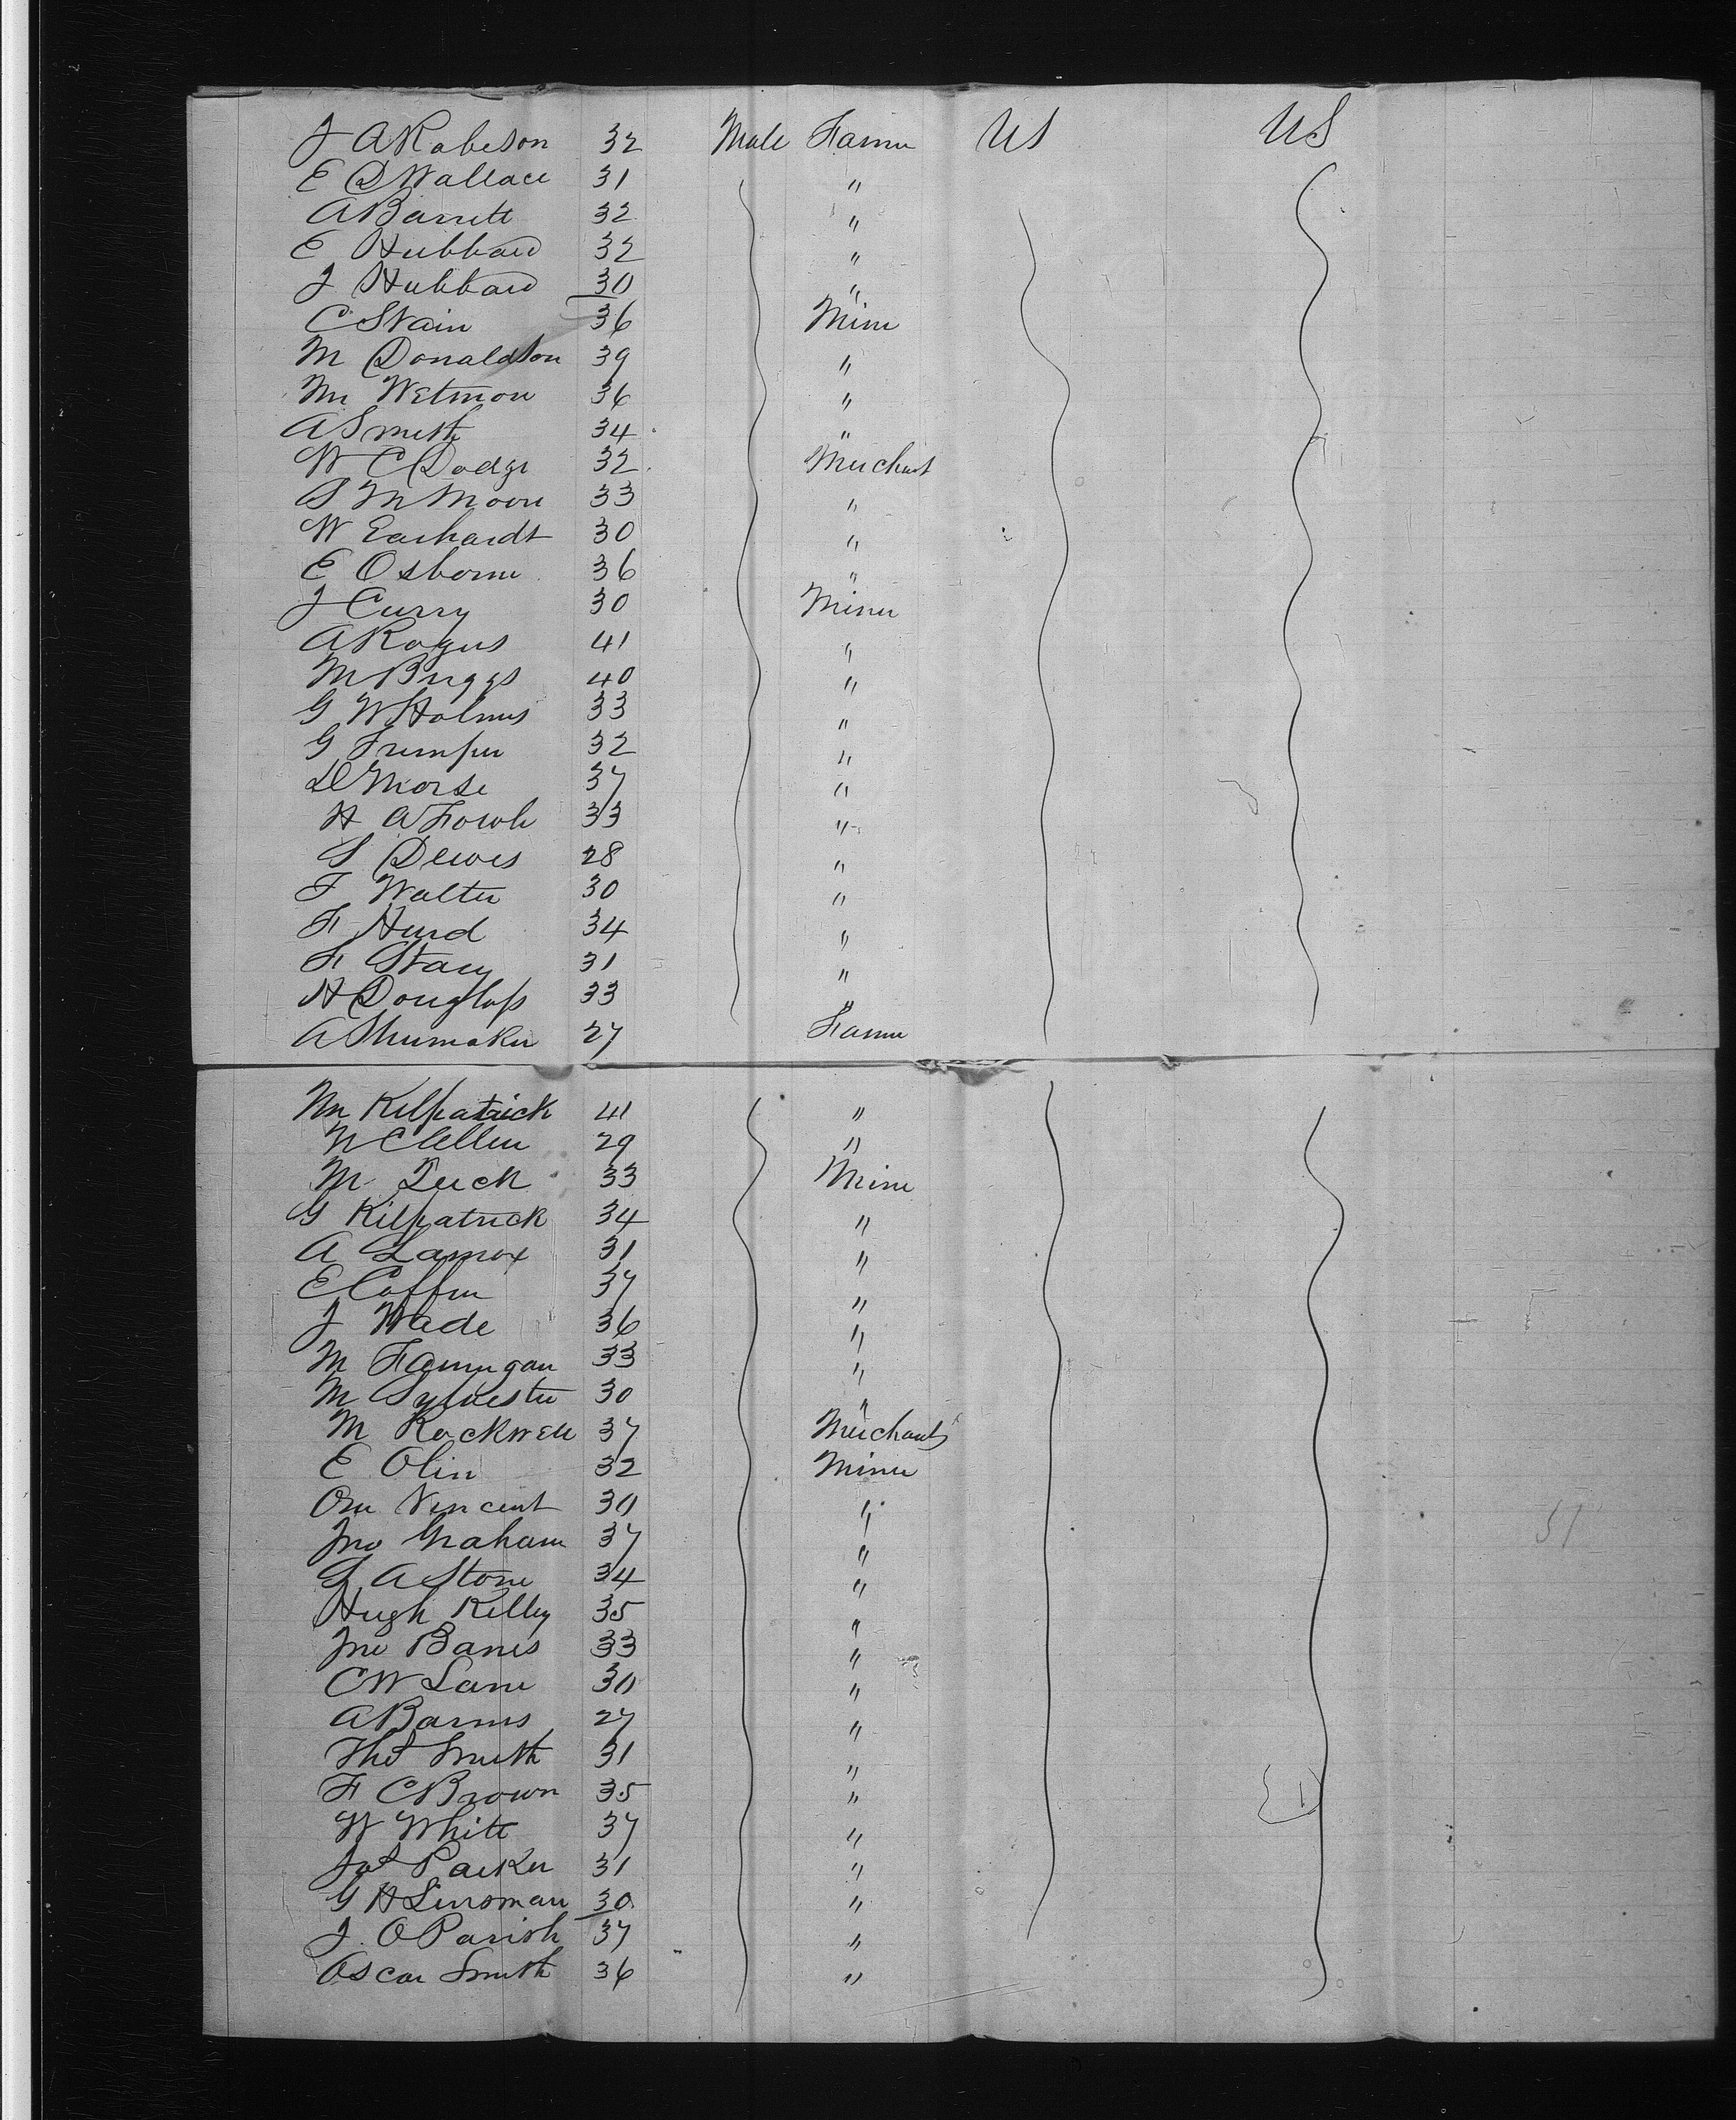 J A Robeson 32 Male Farmer US US
E D Wallace 31 "
A Barrett 32 "
E Hubbard 32 "
J Hubbard 30 "
C Swain 36 Miner
M Donaldson 39 "
Wm Wetmore 36 "
A Smith 34 "
W C Dodge 32 Merchant
S M Moore 33 "
W Earhardt 30 "
E Osborne 36 "
J Curry 30 Miner
A Rogers 41 "
M Briggs 40 "
G W Holmes 33 "
G Trumper 32 "
D Morse 37 "
H A Fowle 33 "
S Dewes 28 "
F Walter 30 "
F Hurd 34 "
F Stacy 31 "
H Douglass 33 "
A Shumaker 27 Farmer
Wm Kilpatrick 41 "
W C Allen 29 "
M Luck 33 Miner
G Kilpatrick 34 "
A Lamox 31 "
E Coffin 37 "
J Wade 36 "
M Fannigan 33 "
M Sylvester 30 "
M Rockwell 37 Merchant
E Olin 32 Miner
Vincent 30 "
Jno Graham 37 "
L A Stone 34 "
Hugh Kelley 35 "
Jno Banes 33 "
C W Lane 30 "
A Barnes 27 "
Thos Smith 31 "
F C Brown 35 "
W White 37 "
Jas Parker 31 "
G H Linsman 30 "
J. O Parish 37 "
Oscar Smith 36 "
51